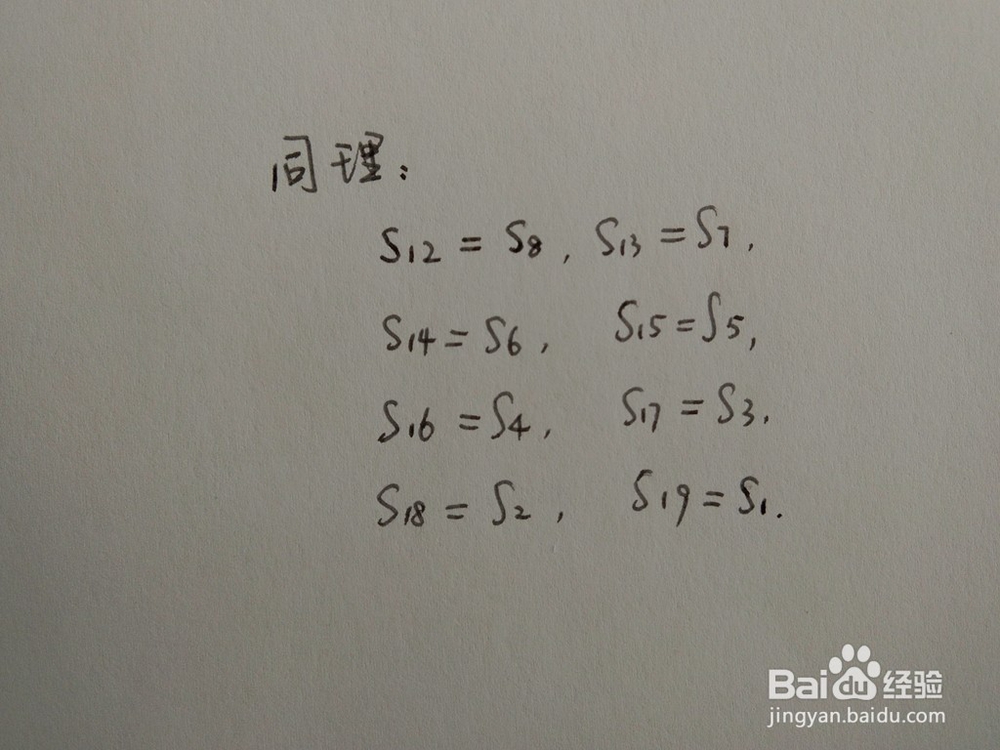 同理:
S12 = S8, S13 = S7,
S14 = S6, S15 = S5,
S16 = S4, S17 = S3,
S18 = S2, S19 = S1.
Baidu经验
jingyan.baidu.com